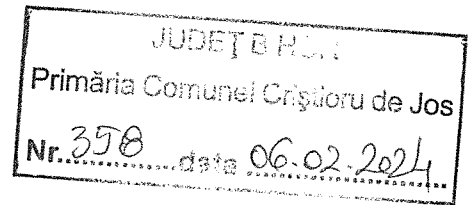 JUDEȚ
Primăria Comunei Criștioru de Jos
Nr. 358 data 06.02.2024